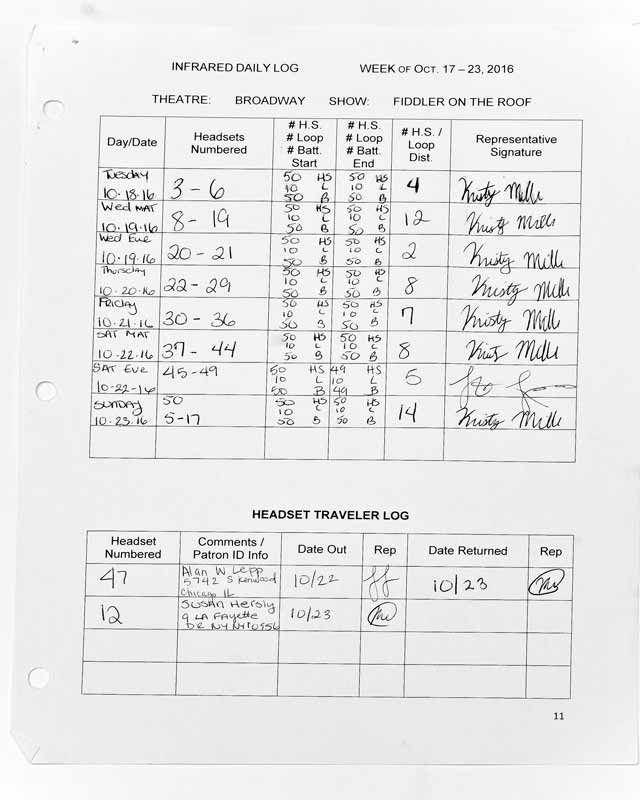 INFRARED DAILY LOG WEEK OF OCT. 17 – 23, 2016
THEATRE: BROADWAY SHOW: FIDDLER ON THE ROOF
Day/Date Headsets Numbered # H.S. # Loop # Batt. Start # H.S. # Loop # Batt. End # H.S. / Loop Dist. Representative Signature
Tuesday 10.18.16 3 - 6 50 HS 10 L 50 B 50 HS 10 L 50 B 4 Kristy Mille
Wed MAT 10.19.16 8 - 19 50 HS 10 L 50 B 50 HS 10 L 50 B 12 Kristy Mille
Wed Eve 10.19.16 20 - 21 50 HS 10 L 50 B 50 HS 10 L 50 B 2 Kristy Mille
Thursday 10.20.16 22 - 29 50 HS 10 L 50 B 50 HS 10 L 50 B 8 Kristy Mille
Friday 10.21.16 30 - 36 50 HS 10 L 50 B 50 HS 10 L 50 B 7 Kristy Mille
SAT MAT 10.22.16 37 - 44 50 HS 10 L 50 B 50 HS 10 L 50 B 8 Mille
SAT Eve 10-22-16 45-49 50 HS 10 L 50 B 49 HS 10 L 49 B 5
SUNDAY 10.23.16 50 5-17 50 HS 10 L 50 B 50 HS 10 L 50 B 14 Kristy Mille
HEADSET TRAVELER LOG
Headset Numbered Comments / Patron ID Info Date Out Rep Date Returned Rep
47 Alan W Lepp 5742 S Kenwood Chicago IL 10/22 10/23
12 SUSAN 9 LA FAyette DR NY NY 10956 10/23
11